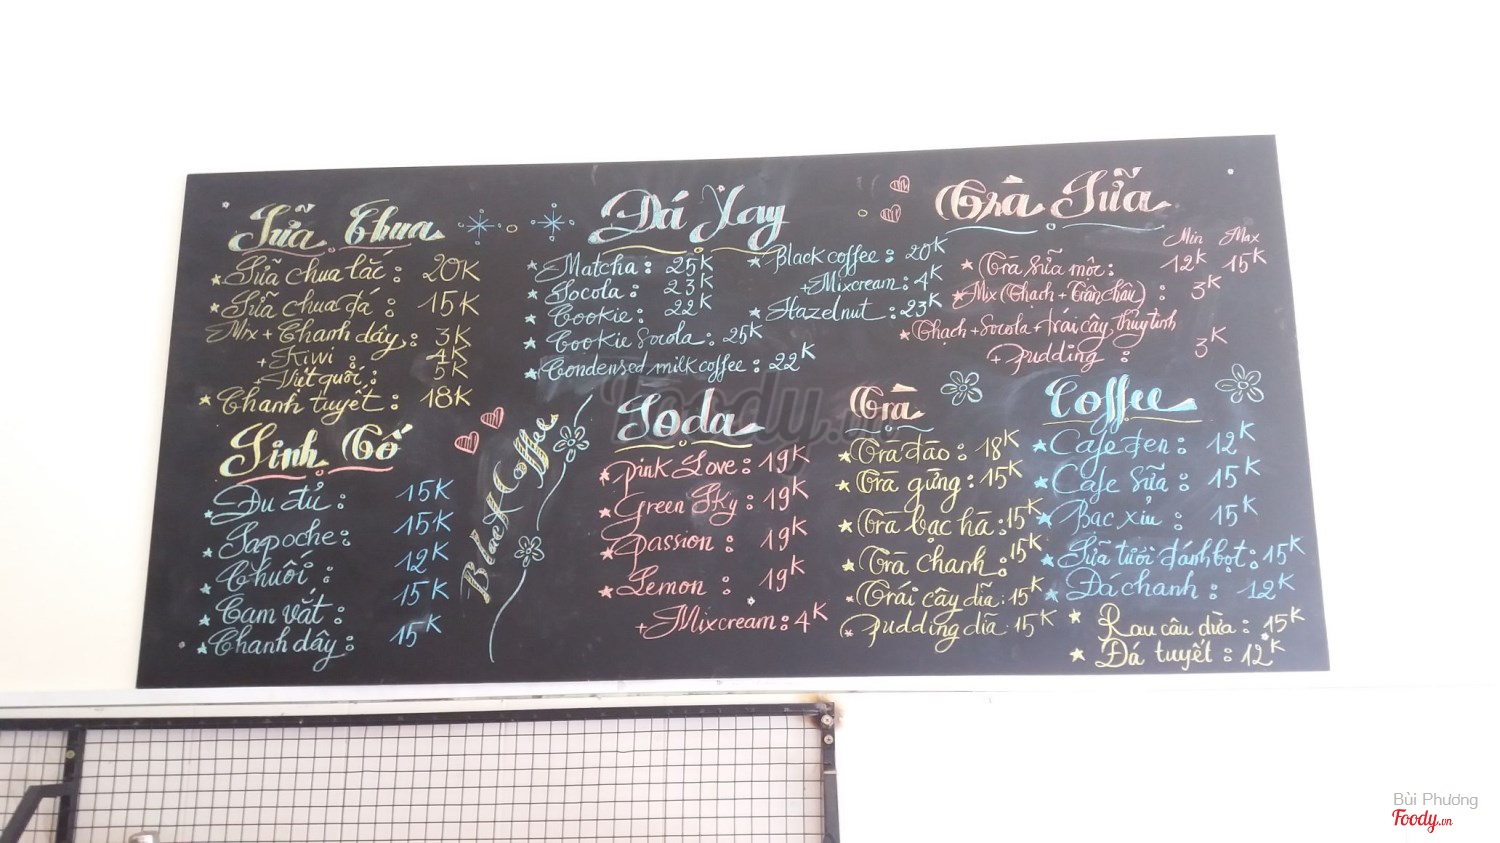 Sữa Chua
★ Sữa chua lắc: 20K
★ Sữa chua đá: 15K
Mix + Chanh dây: 3K
+ Kiwi: 4K
+ Việt quốc: 5K
★ Chanh tuyết: 18K
Sinh Tố
★ Đu đủ: 15K
★ Sapoche: 15K
★ Chuối: 12K
★ Cam vắt: 15K
★ Chanh dây: 15K
Black Coffee
Đá Xay
★ Matcha: 25K
★ Socola: 23K
★ Cookie: 22K
★ Cookie Socola: 25K
★ Condensed milk coffee: 22K
★ Black coffee: 20K
+ Mixcream: 4K
★ Hazelnut: 23K
Soda
★ Pink Love: 19K
★ Green Sky: 19K
★ Passion: 19K
★ Lemon: 19K
+ Mixcream: 4K
Trà Sữa
Min Max
★ Trà sữa mộc: 12K 15K
★ Mix (Thạch + Trân châu): 3K
★ Thạch + Socola + trái cây, thủy tinh
+ pudding: 3K
Trà
★ Trà đào: 18K
★ Trà gừng: 15K
★ Trà bạc hà: 15K
★ Trà chanh: 15K
★ Trái cây dĩa: 15K
★ Pudding dĩa: 15K
Coffee
★ Cafe đen: 12K
★ Cafe sữa: 15K
★ Bạc xỉu: 15K
★ Sữa tươi đánh bọt: 15K
★ Đá chanh: 12K
★ Rau câu dừa: 15K
★ Đá tuyết: 12K
Foody.vn
Bùi Phương
Foody.vn